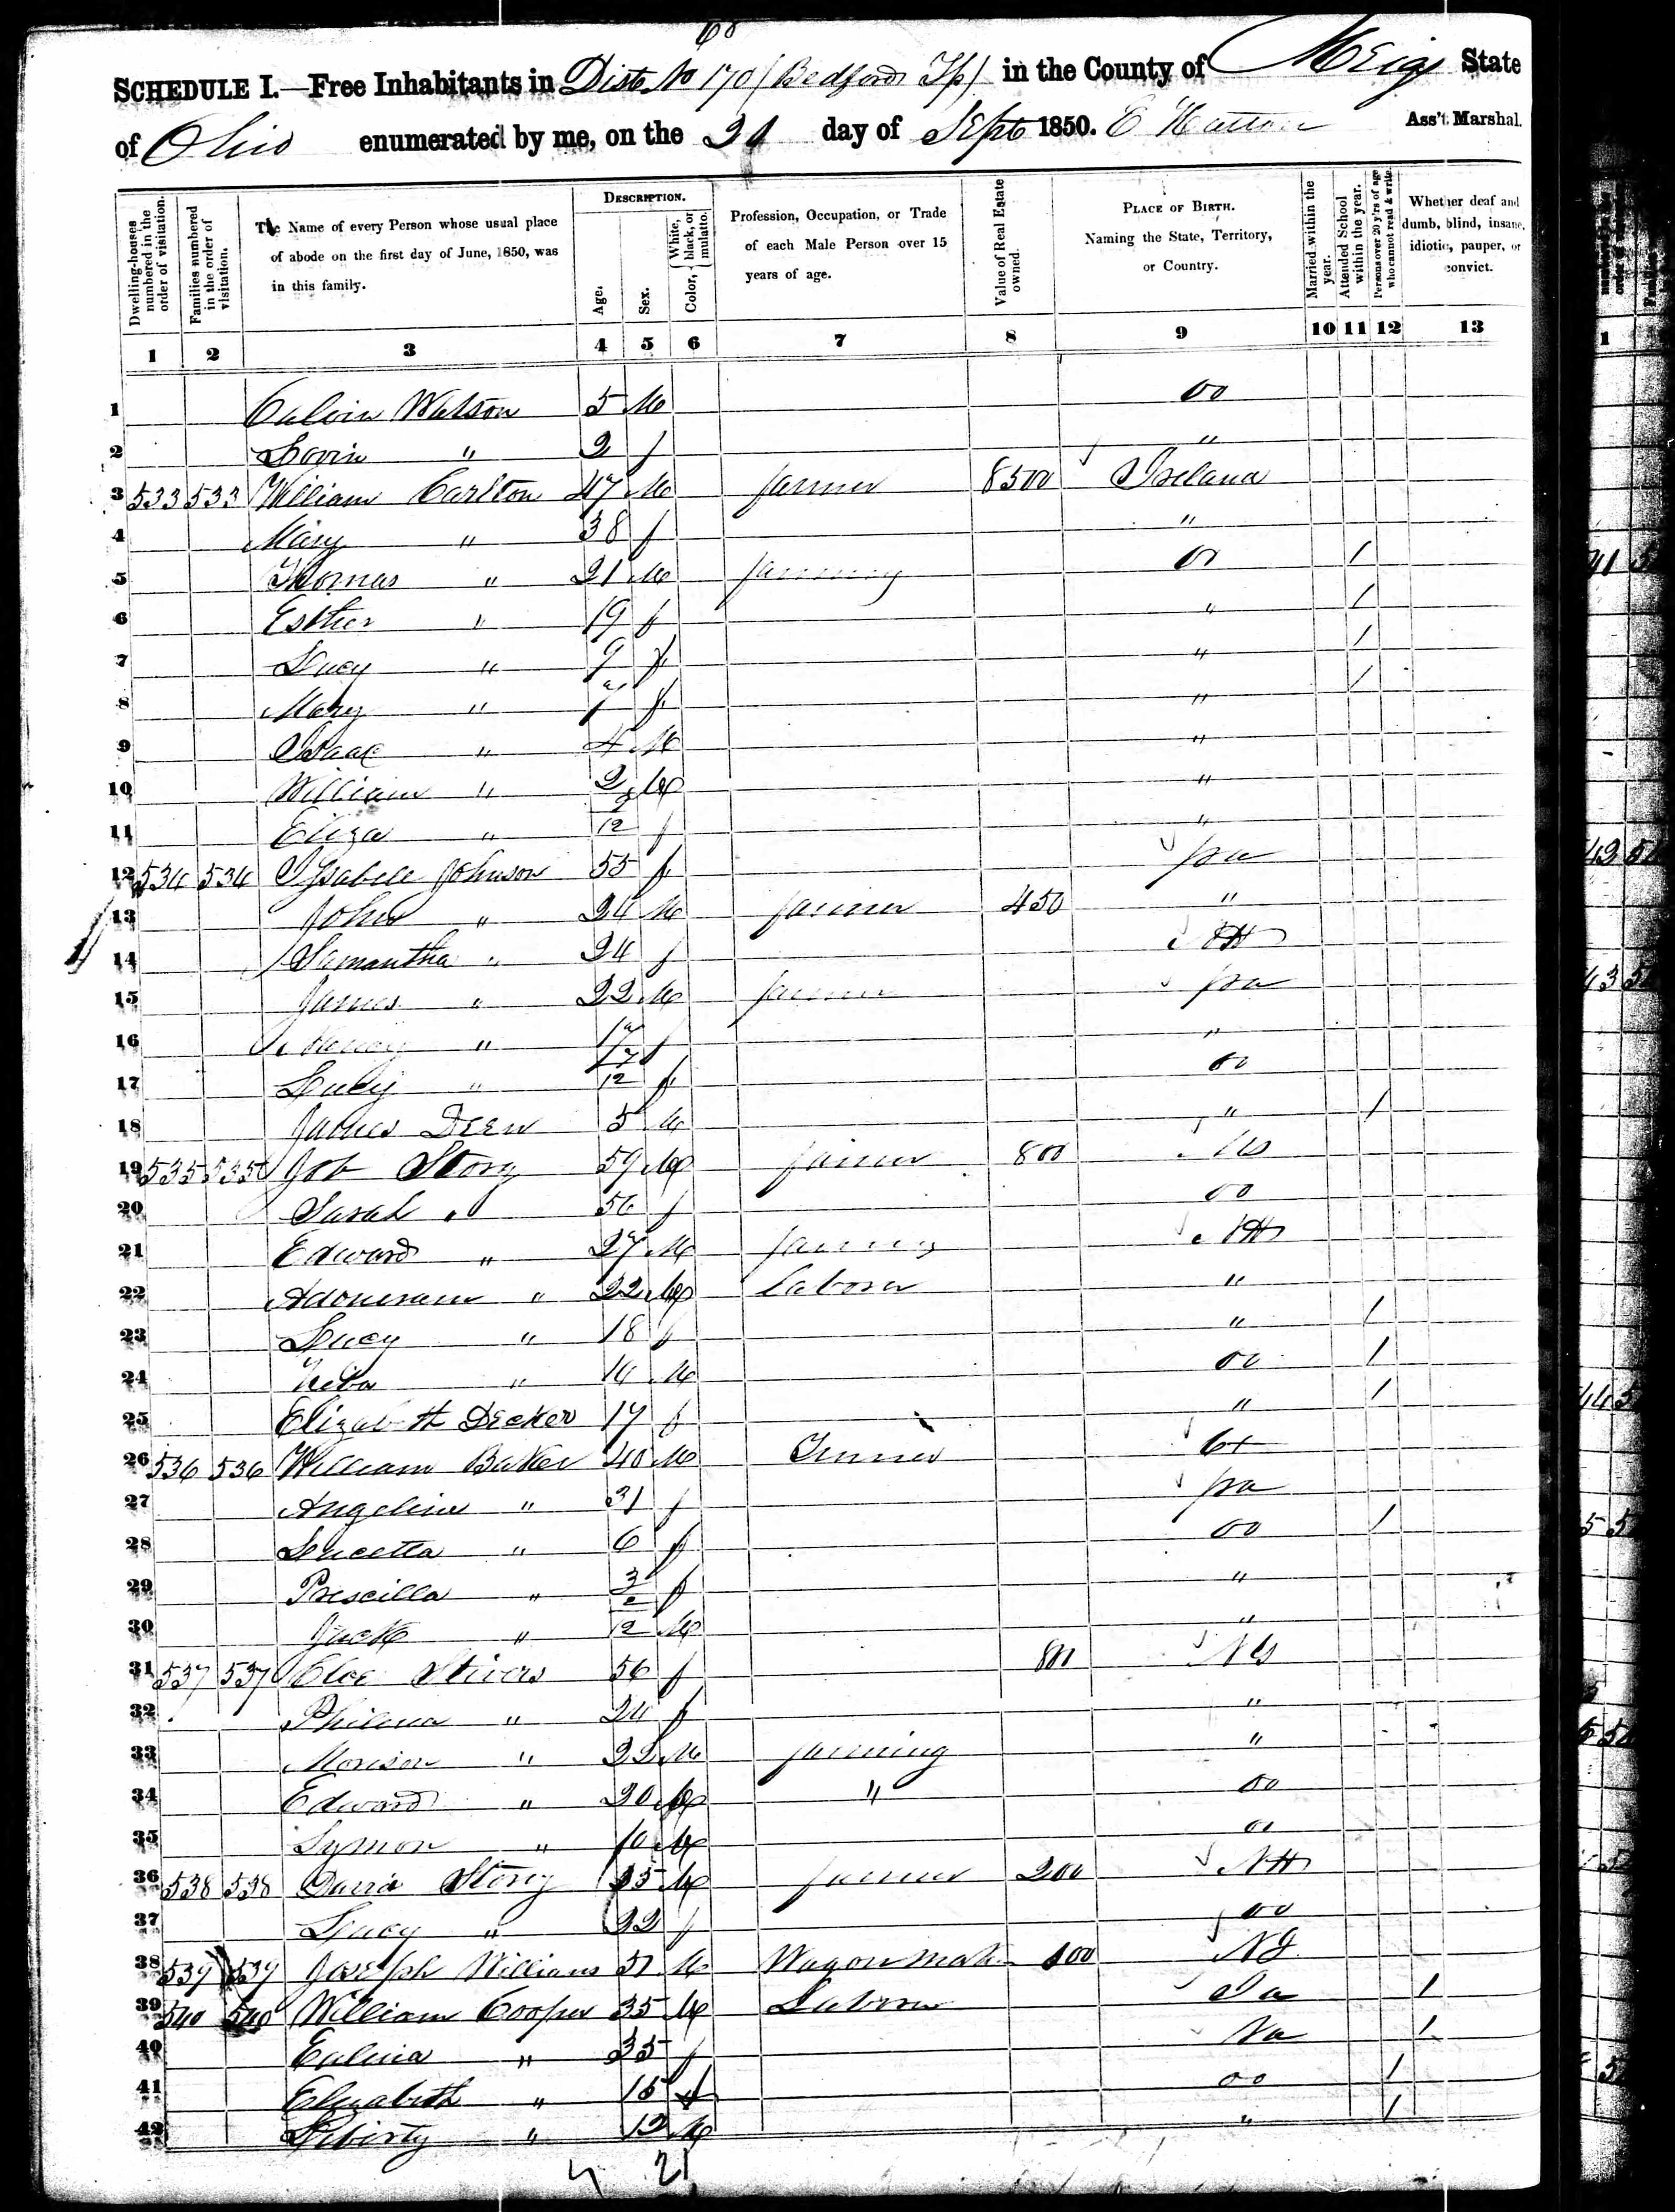 68
SCHEDULE I.—Free Inhabitants in Dist No 170 (Bedford Tp) in the County of Meigs State
of Ohio enumerated by me, on the 21 day of Sept 1850. E Hatton Ass't Marshal.
Dwelling-houses numbered in the order of visitation.
Families numbered in the order of visitation.
The Name of every Person whose usual place of abode on the first day of June, 1850, was in this family.
DESCRIPTION.
Age.
Sex.
Color, White, black, or mulatto.
Profession, Occupation, or Trade of each Male Person over 15 years of age.
Value of Real Estate owned.
PLACE OF BIRTH. Naming the State, Territory, or Country.
Married within the year.
Attended School within the year.
Persons over 20 y'rs of age who cannot read & write.
Whether deaf and dumb, blind, insane, idiotic, pauper, or convict.
1 2 3 4 5 6 7 8 9 10 11 12 13
1 Calvin Watson 5 M oo
2 " 2 f "
3 533 533 William Carlton 47 M farmer 8500 Ireland
4 Mary " 38 f "
5 Thomas " 21 M farming oo /
6 Esther " 19 f " /
7 Lucy " 9 f " /
8 Mary " 7 f " /
9 Isaac " 4 M "
10 William " 2 M "
11 Eliza " /12 f "
12 534 534 Ysabell Johnson 55 f pa
13 John " 24 M farmer 450 "
14 Samantha " 24 f NH
15 James " 22 M farmer pa
16 Nancy " 17 f "
17 Lucy " 7/12 f oo
18 James Deen 5 M " /
19 535 535 Job Story 59 M farmer 800 Ms
20 Sarah " 56 f oo
21 Edward " 27 M farming NH
22 Adoneram " 22 M Laborer "
23 Lucy " 18 f " /
24 " 14 M oo /
25 Elizabeth Decker 17 f " /
26 536 536 William Baker 40 M Ct
27 Angeline " 31 f pa
28 Lucetta " 6 f oo /
29 Priscilla " 3 f "
30 Jack " 2/12 M "
31 537 537 Stivers 56 f 800
32 Philena " 24 f "
33 Morison " 22 M farming "
34 Edward " 20 M " oo
35 Lymon " 10 M oo
36 538 538 David Story 25 M farmer 200 NH
37 Lucy " 22 f oo
38 539 539 Joseph Williams 51 M Wagon maker 100 NJ
39 540 540 William Cooper 35 M Laborer /
40 " 35 f Va /
41 Elizabeth " 15 f oo /
42 Liberty " 12 M " /
21